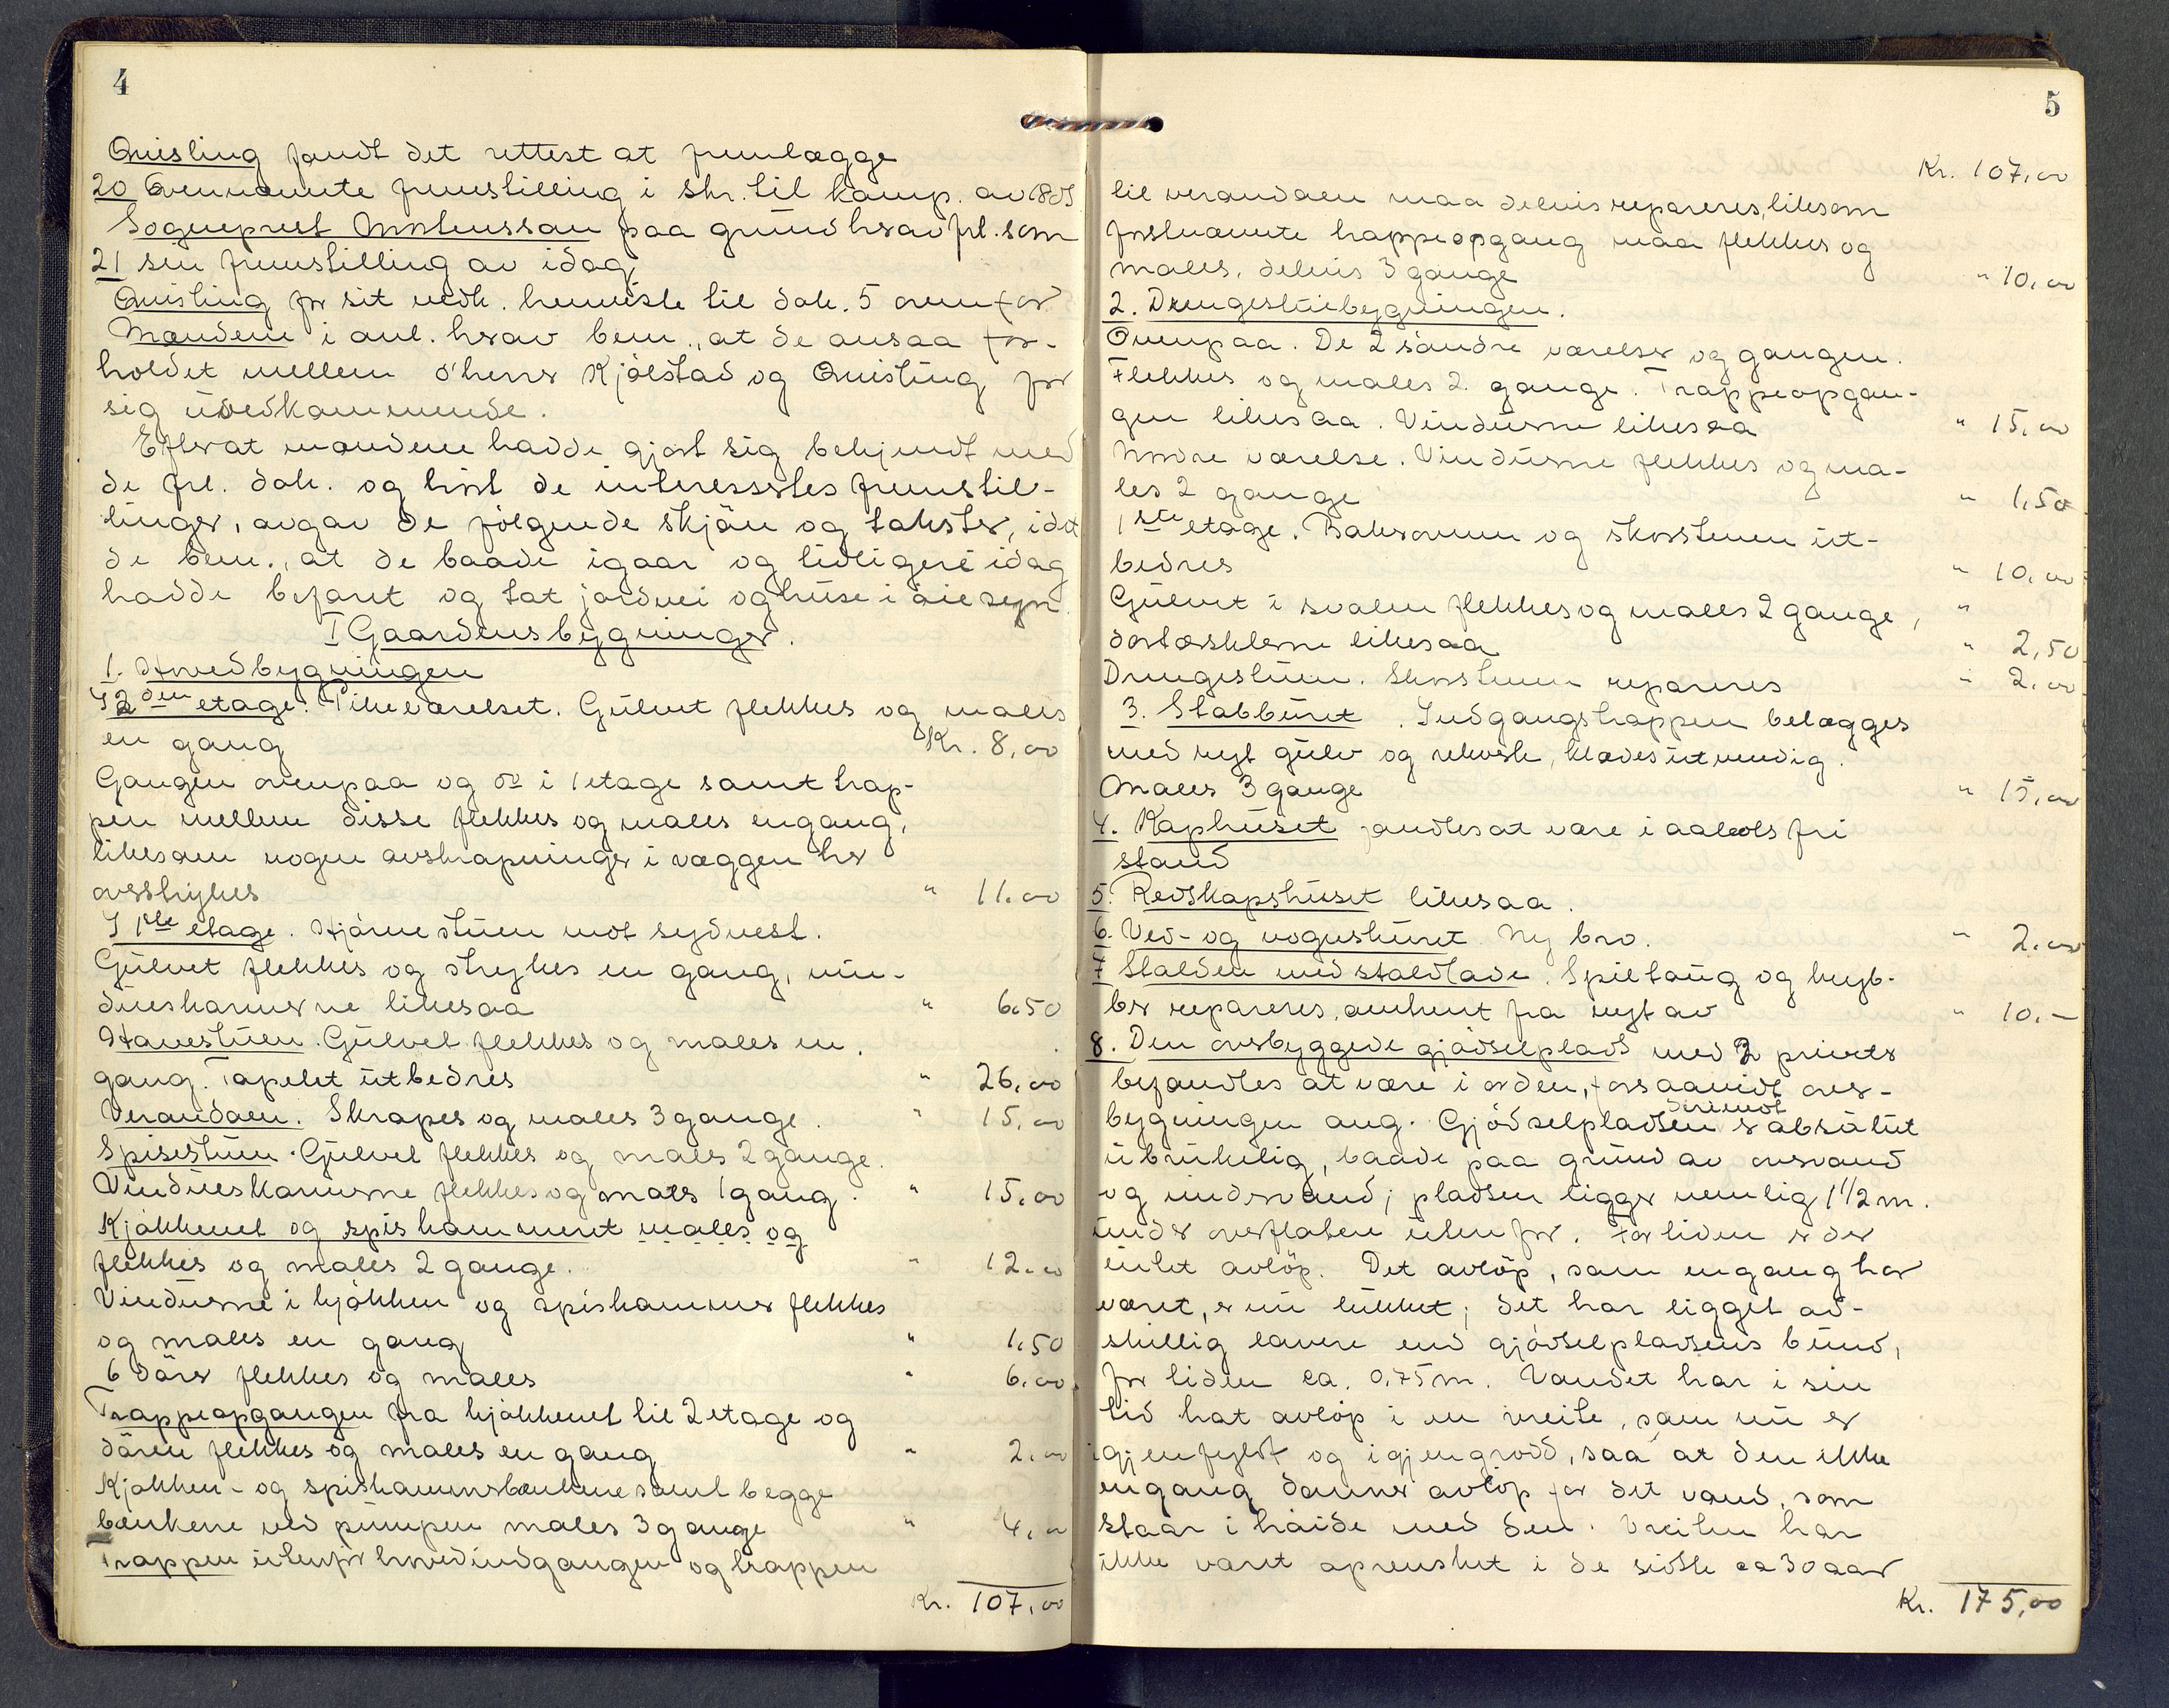 4
Quisling fandt det rettest at fremlægge
20 Ovennævnte fremstilling i skr. til komp. av 18ds
Sogneprest Mortenssøn paa grund herav frl. som
21 sin fremstilling av idag
Quisling for sit vedk. henviste til dok. 5 ovenfor
Mændene i anl. herav bem., at de ansaa for-
holdet mellem d'herr Kjølstad og Quisling for
sig uvedkommende.
Efterat mændene hadde gjort sig bekjendt med
de frl. dok. og hørt de interessertes fremstil-
linger, avgav de følgende skjøn og takster, idet
de bem., at de baade igaar og tidligere idag
hadde befaret og tat jordvei og huse i øiesyn.
I Gaardens bygninger.
1. Hovedbygningen
I 2den etage. Pikeværelset. Gulvet flekkes og males
en gang Kr. 8,00
Gangen ovenpaa og do i 1 etage samt trap-
pen mellem disse flekkes og males engang,
likesom nogen avskrapninger i væggen her
overstrykes " 11.00
I 1ste etage. Hjørnestuen mot sydvest.
Gulvet flekkes og strykes en gang, vin-
dueskarmerne likesaa " 6.50
Havestuen. Gulvet flekkes og males en
gang. Tapetet utbedres " 26,00
Verandaen. Skrapes og males 3 gange. " 15,00
Spisestuen. Gulvet flekkes og males 2 gange.
Vindueskarmerne flekkes og males 1 gang. " 15,00
Kjøkkenet og spiskammeret males og
flekkes og males 2 gange. " 12.00
Vinduerne i kjøkken og spiskammer flekkes
og males en gang " 1,50
6 dører flekkes og males " 6.00
Trappeopgangen fra kjøkkenet til 2 etage og
døren flekkes og males en gang " 2,00
Kjøkken- og spiskammerbænkene samt begge
bænkene ved pumpen males 3 gange " 4,00
Trappen utenfor hovedindgangen og trappen
Kr. 107,00
5
Kr. 107,00
til verandaen maa delvis repareres, likesom
førstnævnte trappeopgang maa flekkes og
males, delvis 3 gange " 10,00
2. Drengestuebygningen.
Ovenpaa. De 2 søndre værelser og gangen.
Flekkes og males 2 gange. Trappeopgan-
gen likesaa. Vinduerne likesaa " 15,00
Nordre værelse. Vinduerne flekkes og ma-
les 2 gange " 1,50
1ste etage. Bakerovnen og skorstenen ut-
bedres " 10,00
Gulvet i svalen flekkes og males 2 gange, "
dørtærsklerne likesaa " 2,50
Drengestuen. Skorstenen repareres " 2,00
3. Stabburet. Indgangstrappen belægges
med nyt gulv og rekverk, klædes utvendig.
Males 3 gange " 15,00
4. Kaphuset fandtes at være i aabotsfri
stand
5. Redskapshuset likesaa.
6. Ved- og vognskuret. Ny bro. " 2.00
7 Stalden med staldlade. Spiltaug og kryb-
ber repareres, omtrent fra nyt av " 10.-
8. Den overbyggede gjødselplads med 2 priveter
befandtes at være i orden, forsaavidt over-
bygningen ang. Gjødselpladsen derimot er absolut
ubrukelig, baade paa grund av overvand
og undervand; pladsen ligger nemlig 1 1/2 m.
under overflaten utenfor. For tiden er der
intet avløp. Det avløp, som engang har
været, er nu lukket; det har ligget ad-
skillig lavere end gjødselpladsens bund,
for tiden ca. 0,75 m. Vandet har i sin
tid hat avløp i en veite, som nu er
igjenfyldt og igjengrodd, saa at den ikke
engang danner avløp for det vand, som
staar i høide med den. Veiten har
ikke været oprensket i de sidste ca 30 aar
Kr. 175,00